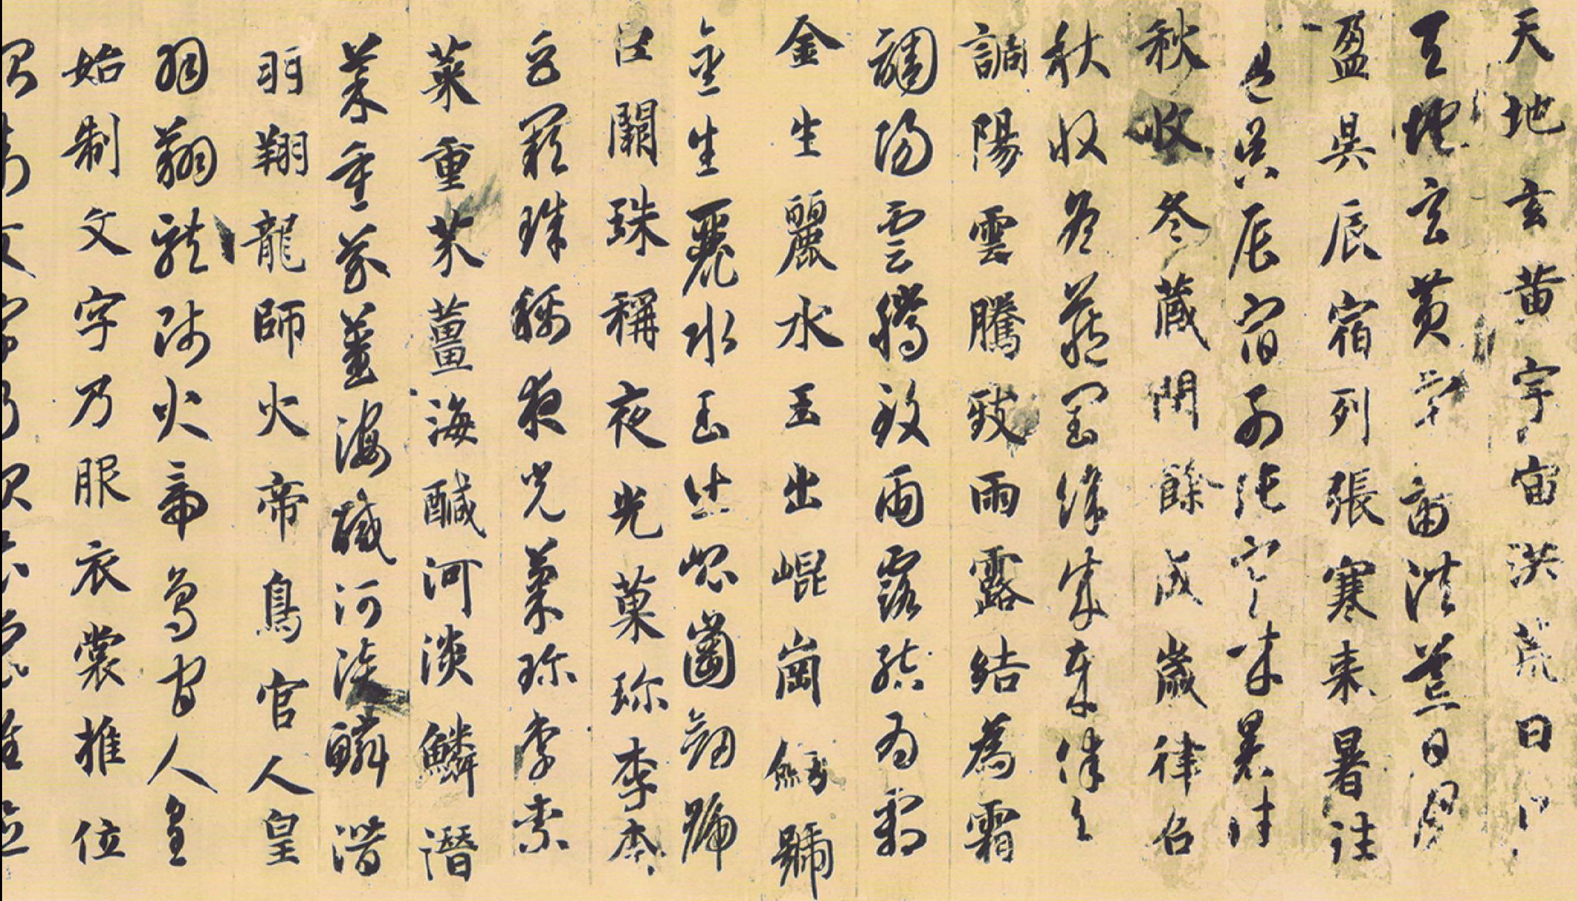 天地玄黄宇宙洪荒日
天地玄黄宇宙洪荒日月
盈昃辰宿列張寒来暑往
盈昃辰宿列張寒来暑往
秋收冬藏閏餘成歲律召
秋收冬藏閏餘成歲律召
調陽雲騰致雨露結為霜
調陽雲騰致雨露結為霜
金生麗水玉出崐崗劒號
金生麗水玉出崐崗劒號
巨闕珠稱夜光菓珎李柰
巨闕珠稱夜光菓珎李柰
菜重芥薑海醎河淡鱗潛
菜重芥薑海醎河淡鱗潛
羽翔龍師火帝鳥官人皇
羽翔龍師火帝鳥官人皇
始制文字乃服衣裳推位